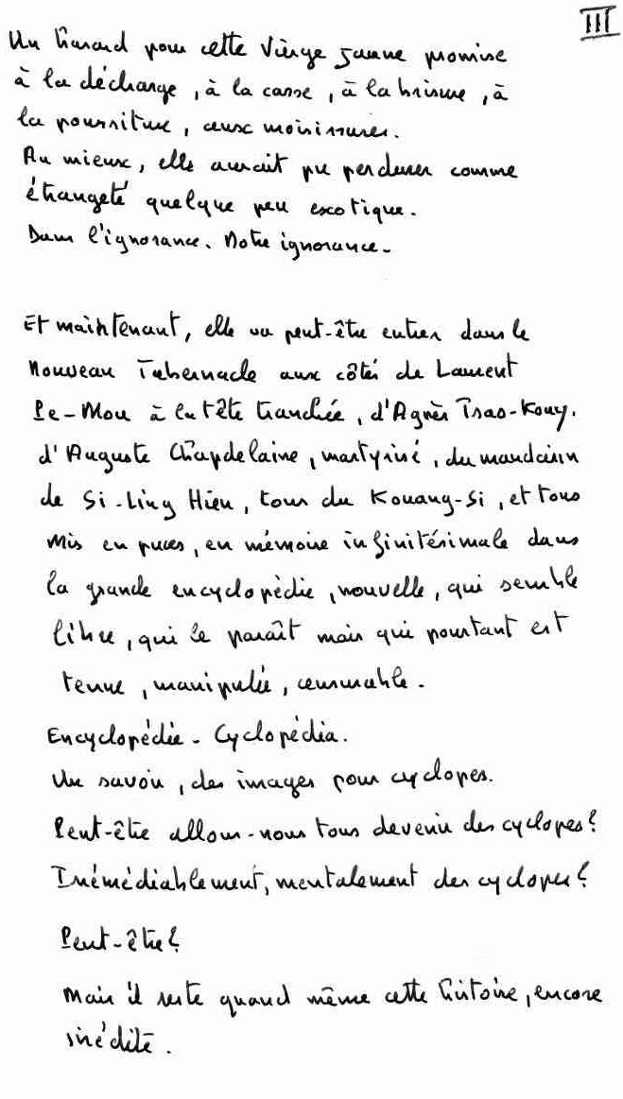 III
Un hasard pour cette Vierge jaune promise
à la décharge, à la casse, à la brisure, à
la pourriture, aux moisissures.
Au mieux, elle aurait pu perdurer comme
étrangeté quelque peu exotique.
Dans l'ignorance. Notre ignorance.
Et maintenant, elle va peut-être entrer dans le
Nouveau Tabernacle aux côtés de Laurent
Pe-Mou à la tête tranchée, d'Agnès Tsao-Kouy,
d'Auguste Chapdelaine, martyrisé, du mandarin
de Si-Ling Hien, tous du Kouang-Si, et tous
mis en puces, en mémoire infinitésimale dans
la grande encyclopédie, nouvelle, qui semble
libre, qui le paraît mais qui pourtant est
tenue, manipulée, censurable.
Encyclopédie - Cyclopédia.
Un savoir, des images pour cyclopes.
Peut-être allons-nous tous devenir des cyclopes?
Irrémédiablement, mentalement des cyclopes?
Peut-être?
Mais il reste quand même cette histoire, encore
inédite.